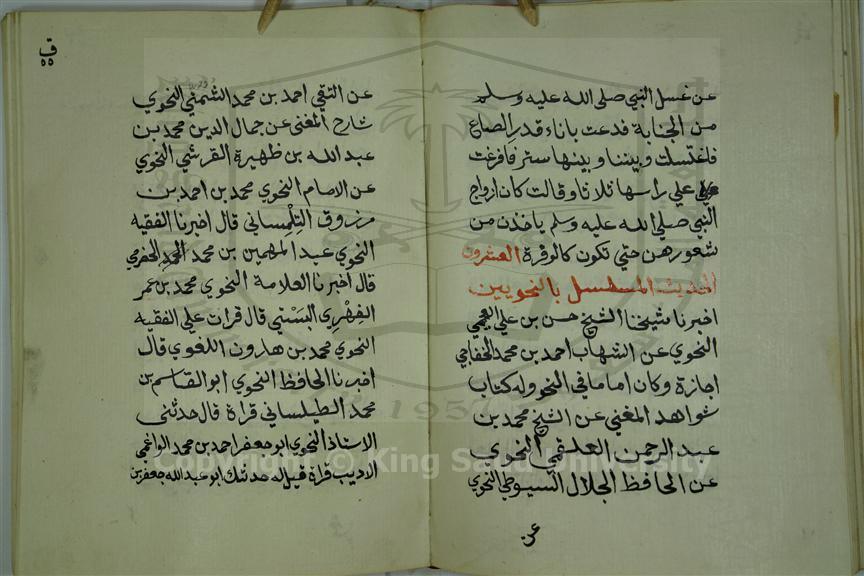 عن غسل النبي صلى الله عليه وسلم
من الجنابة فدعت باناء قدر الصاع
فاغتسلت وبيننا وبينها ستر فافرغت
علي راسها ثلاثا وقالت كان ازواج
النبي صلي الله عليه وسلم ياخذن من
شعورهن حتي تكون كالوفرة العشرون
الحديث المسلسل بالنحويين
اخبرنا شيخنا الشيخ حسن بن علي العجمي
النحوي عن الشهاب احمد بن محمد الخفاجي
اجازة وكان اماما في النحو وله كتاب
شواهد المغني عن الشيخ محمد بن
عبد الرحمن العلقمي النحوي
عن الحافظ الجلال السيوطي النحوي
عن
ق
٥٥
عن التقي احمد بن محمد الشمني النحوي
شارح المغني عن جمال الدين محمد بن
عبد الله بن ظهيرة القرشي النحوي
عن الامام النحوي محمد بن احمد بن
مرزوق التلمساني قال اخبرنا الفقيه
النحوي عبد المهيمن بن محمد الحضرمي
قال اخبرنا العلامة النحوي محمد بن عمر
الفهري البستي قال قرات علي الفقيه
النحوي محمد بن هارون اللغوي قال
اخبرنا الحافظ النحوي ابو القاسم بن
محمد الطيلساني قراة قال حدثني
الاستاذ النحوي ابو جعفر احمد بن محمد
الاديب قراة قيل له حدثك ابو عبد الله جعفر بن
Copyright © King Saud University
1957